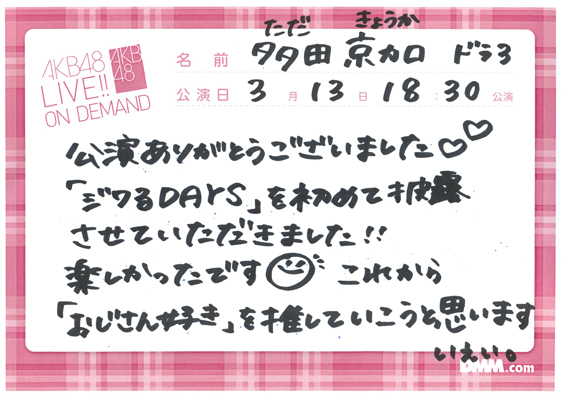 AKB48
LIVE!!
ON DEMAND
AKB
48
ただ きょうか
名前 多田 京加 ドラ3
公演日 3月13日 18:30 公演
公演ありがとうございました♡♡
「ジワるDAYS」を初めて披露
させていただきました!!
楽しかったです これから
「おじさん好き」を推していこうと思います
いえい。
DMM.com